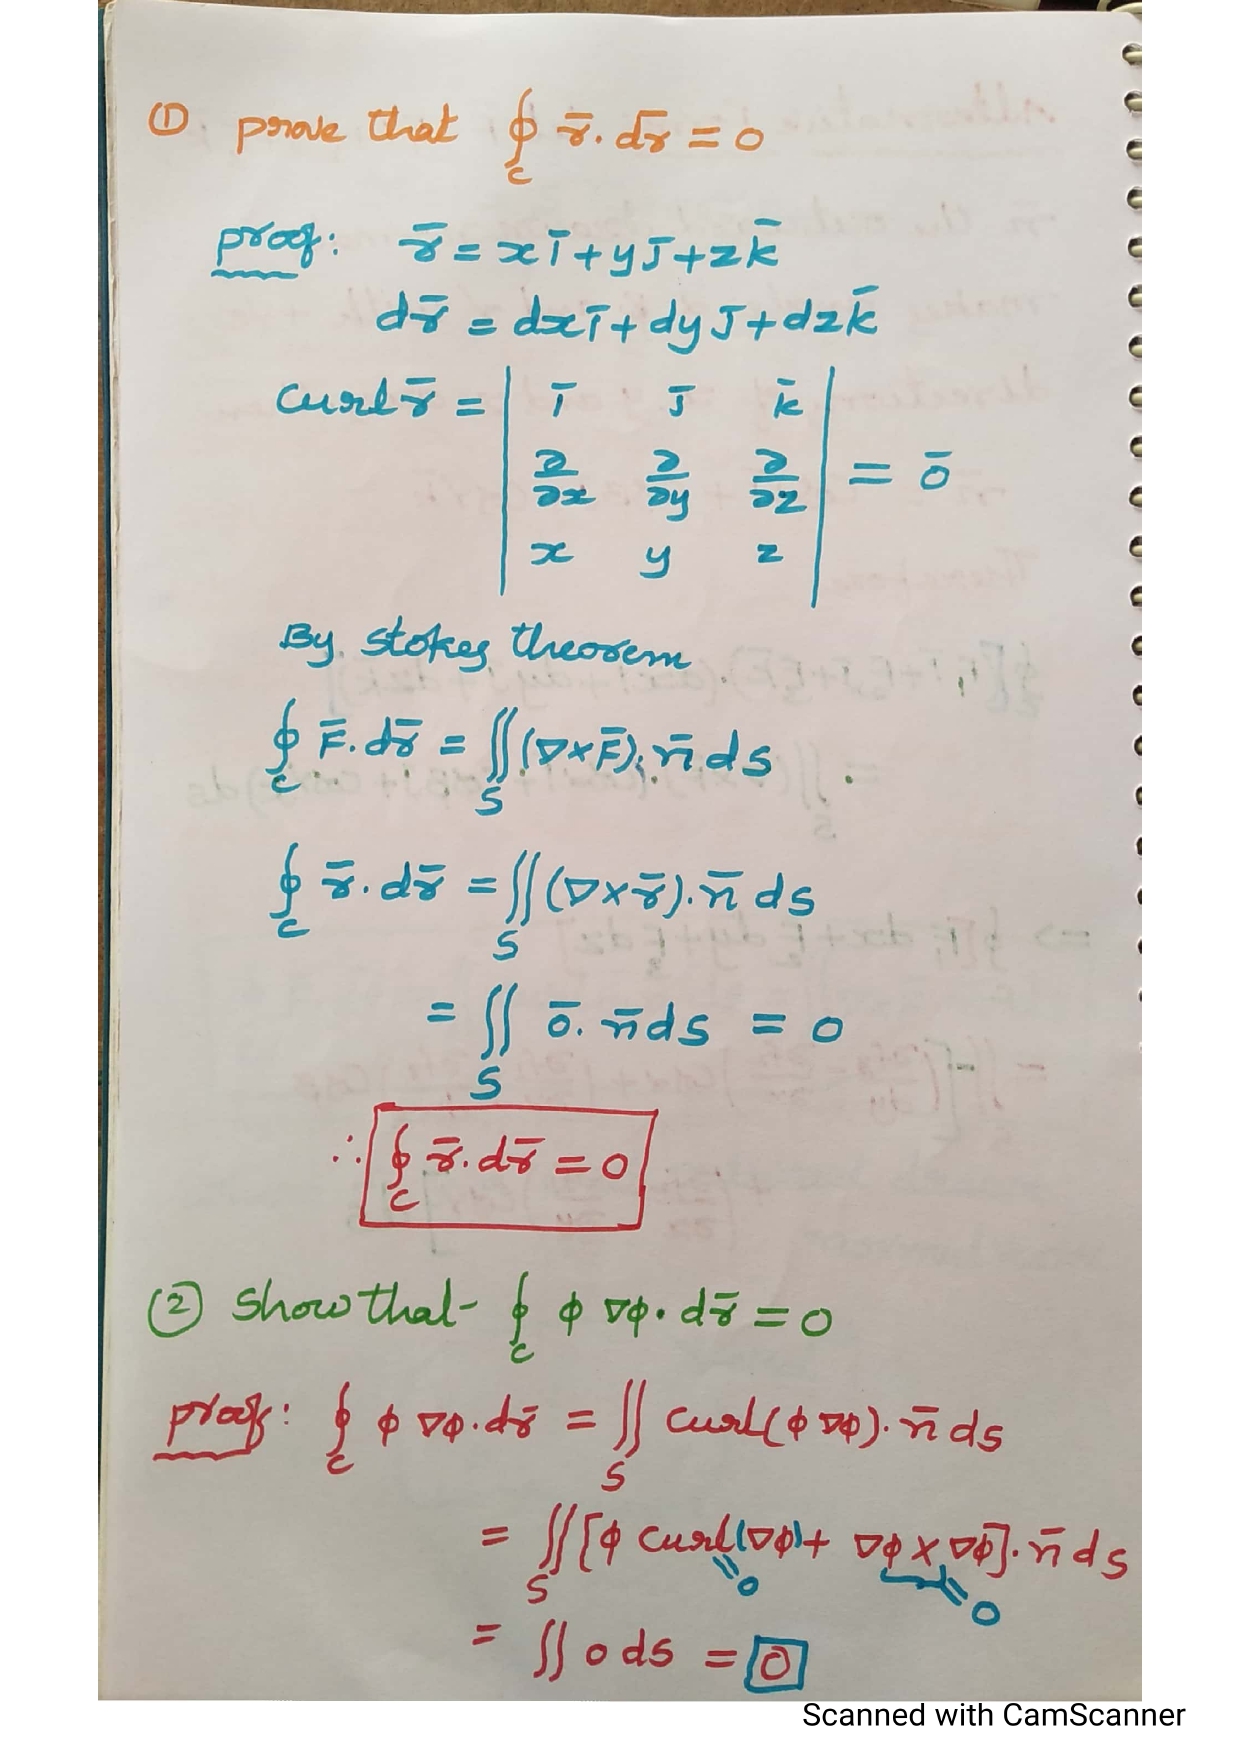 ① prove that ∮_C r̄. dr̄ = 0
proof: r̄ = x ī + y j̄ + z k̄
dr̄ = dx ī + dy j̄ + dz k̄
curl r̄ = | ī j̄ k̄ |
| ∂/∂x ∂/∂y ∂/∂z | = ō
| x y z |
By stokes theorem
∮_C F̄. dr̄ = ∬_S (∇×F̄). n̄. ds
∮_C r̄. dr̄ = ∬_S (∇×r̄). n̄ ds
= ∬_S ō. n̄ ds = 0
∴ ∮_C r̄. dr̄ = 0
② Show that - ∮_C ϕ ∇ϕ. dr̄ = 0
proof: ∮_C ϕ ∇ϕ. dr̄ = ∬_S curl(ϕ ∇ϕ). n̄ ds
= ∬_S [ϕ curl(∇ϕ) + ∇ϕ × ∇ϕ]. n̄ ds
= 0 = 0
= ∬ 0 ds = 0
Scanned with CamScanner